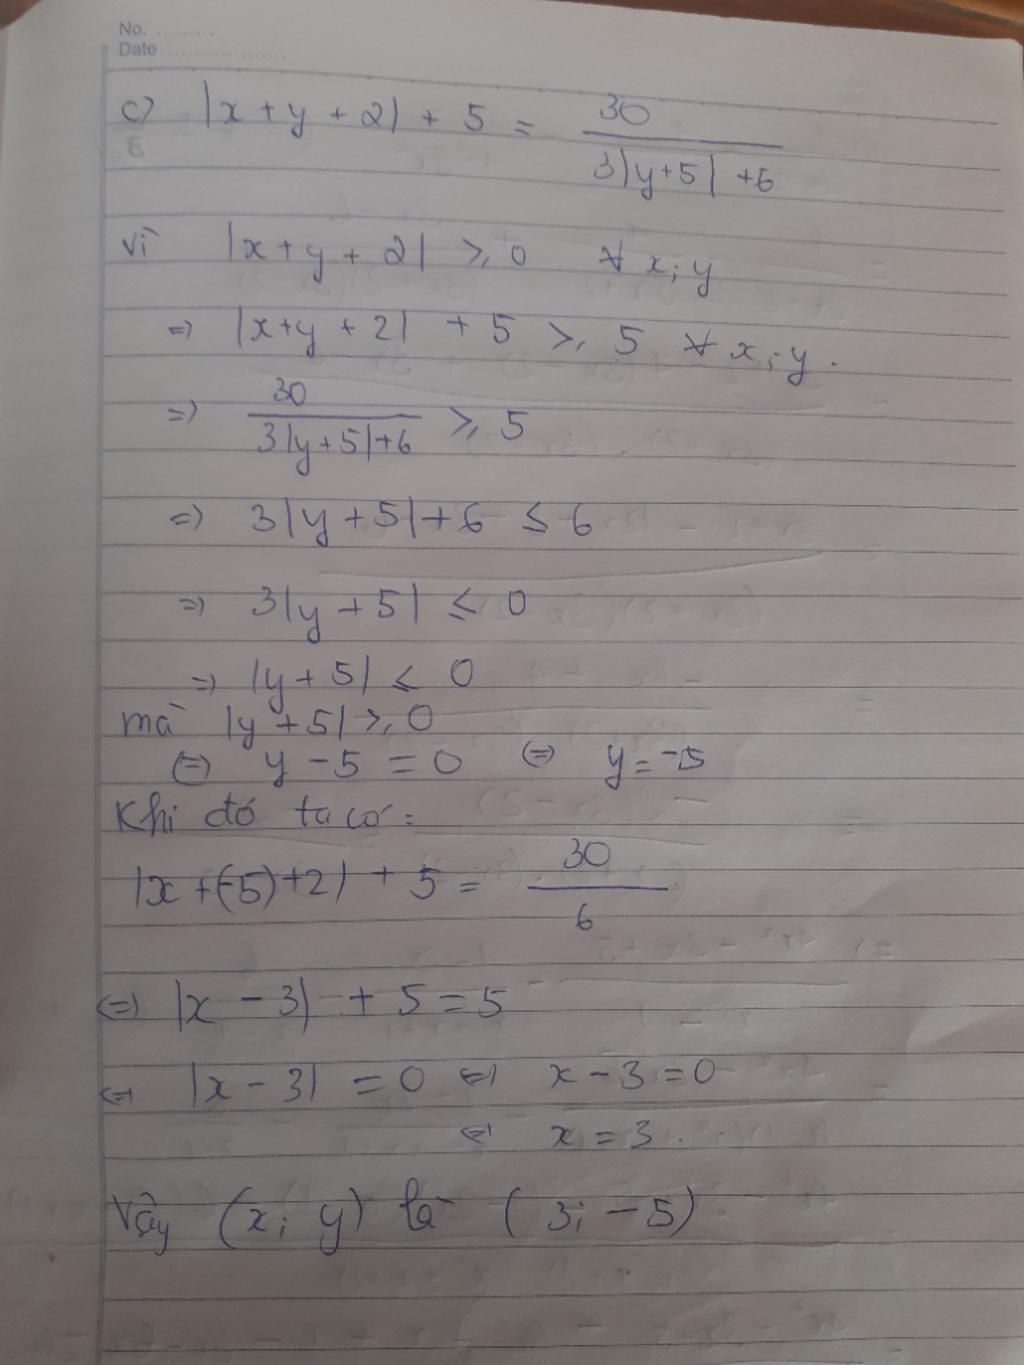 No. ..........
Date .....................
c) |x + y + 2| + 5 = 30 / (3|y+5| + 6)
E
Vì |x + y + 2| ⩾ 0 ∀ x; y
=) |x+y + 2| + 5 ⩾ 5 ∀ x; y.
=) 30 / (3|y+5|+6) ⩾ 5
=) 3|y + 5| + 6 ≤ 6
=) 3|y + 5| ≤ 0
=) |y + 5| ≤ 0
mà |y + 5| ⩾ 0
(=) y - 5 = 0 (=) y = -5
Khi đó ta có:
|x + (-5) + 2| + 5 = 30 / 6
(=) |x - 3| + 5 = 5
(=) |x - 3| = 0 (=) x - 3 = 0
(=) x = 3.
Vậy (x; y) là (3; -5)